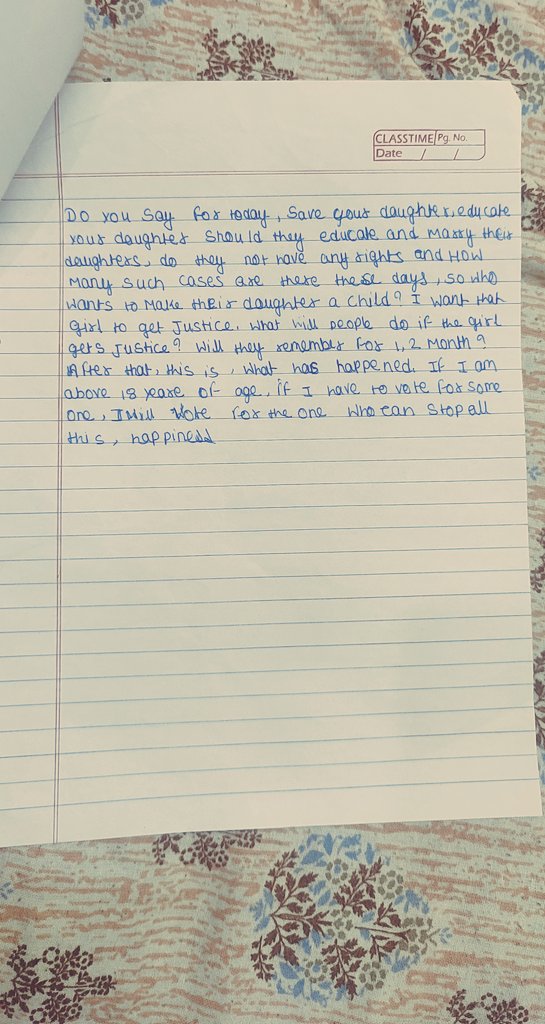 CLASSTIME Pg. No.
Date / /
Do you say for today, save your daughter, educate
your daughter should they educate and marry their
daughters, do they not have any rights and How
many such cases are there these days, so who
wants to make their daughter a child? I want that
girl to get Justice. what will people do if the girl
gets justice? Will they remember for 1, 2 month?
After that, this is, what has happened. If I am
above 18 yeare of age, if I have to vote for some
one, I will vote for the one who can stop all
this, happiness